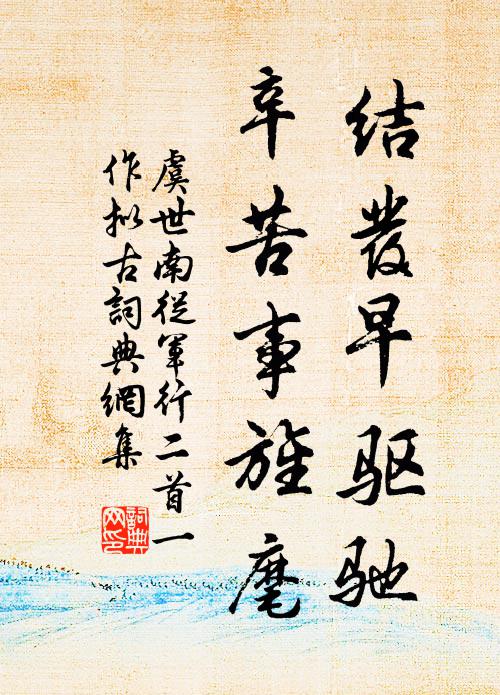 结發早驱驰
辛苦事旌麾
虞世南從軍行二首一
作拟古詞典網集
詞典
网印